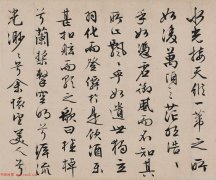 水光接天縱一葦之所
如凌萬頃之茫然浩浩
乎如馮虛御風而不知其
所止飄飄乎如遺世獨立
羽化而登仙於是飲酒樂
甚扣舷而歌之歌曰桂棹
兮蘭槳擊空明兮泝流
光渺渺兮余懷望美人兮